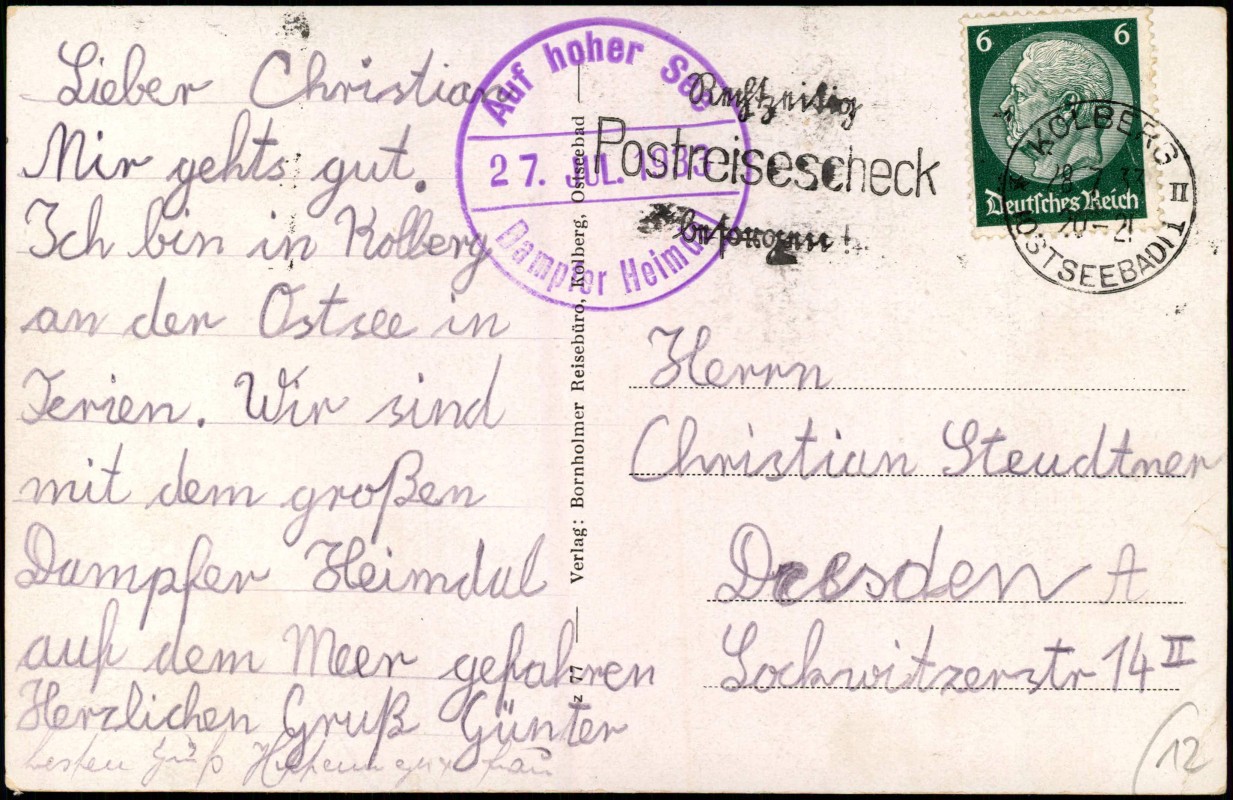 Lieber Christian
Mir gehts gut.
Ich bin in Kolberg
an der Ostsee in
Ferien. Wir sind
mit dem großen
Dampfer Heimdal
auf dem Meer gefahren
Herzlichen Gruß Günter
besten Gruß
Auf hoher See
27. JUL. 1933
Dampfer Heimdal
z 77 — Verlag: Bornholmer Reisebüro, Kolberg, Ostseebad —
Rechtzeitig
Postreisescheck
besorgen!
6 6
Deutsches Reich
KOLBERG II
20-21
OSTSEEBAD
Herrn
Christian Steudtner
Dresden A
Lockwitzerstr 14 II
12